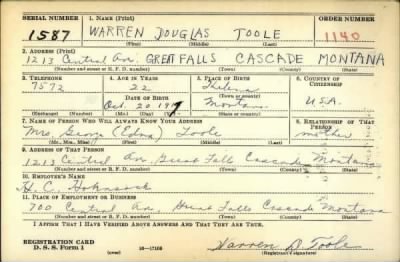 SERIAL NUMBER 1. NAME (Print) ORDER NUMBER
1587 WARREN DOUGLAS TOOLE 1140
(First) (Middle) (Last)
2. ADDRESS (Print)
1213 Central Av. GREAT FALLS CASCADE MONTANA
(Number and street or R. F. D. number) (Town) (County) (State)
3. TELEPHONE 4. AGE IN YEARS 5. PLACE OF BIRTH 6. COUNTRY OF CITIZENSHIP
7572 22 Helena
DATE OF BIRTH (Town or county)
Oct. 20 1917 Montana U.S.A.
(Exchange) (Number) (Mo.) (Day) (Yr.) (State or country)
7. NAME OF PERSON WHO WILL ALWAYS KNOW YOUR ADDRESS 8. RELATIONSHIP OF THAT PERSON
Mrs. George (Edna) Toole mother
(Mr., Mrs., Miss) (First) (Middle) (Last)
9. ADDRESS OF THAT PERSON
1213 Central Av. Great Falls Cascade Montana
(Number and street or R. F. D. number) (Town) (County) (State)
10. EMPLOYER'S NAME
H. C.
11. PLACE OF EMPLOYMENT OR BUSINESS
700 Central Av. Great Falls Cascade Montana
(Number and street or R. F. D. number) (Town) (County) (State)
I AFFIRM THAT I HAVE VERIFIED ABOVE ANSWERS AND THAT THEY ARE TRUE.
REGISTRATION CARD
D. S. S. Form 1 (over) 16—17105 Warren D. Toole
(Registrant's signature)